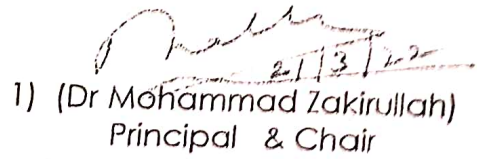 21/3/22
1) (Dr Mohammad Zakirullah)
Principal & Chair